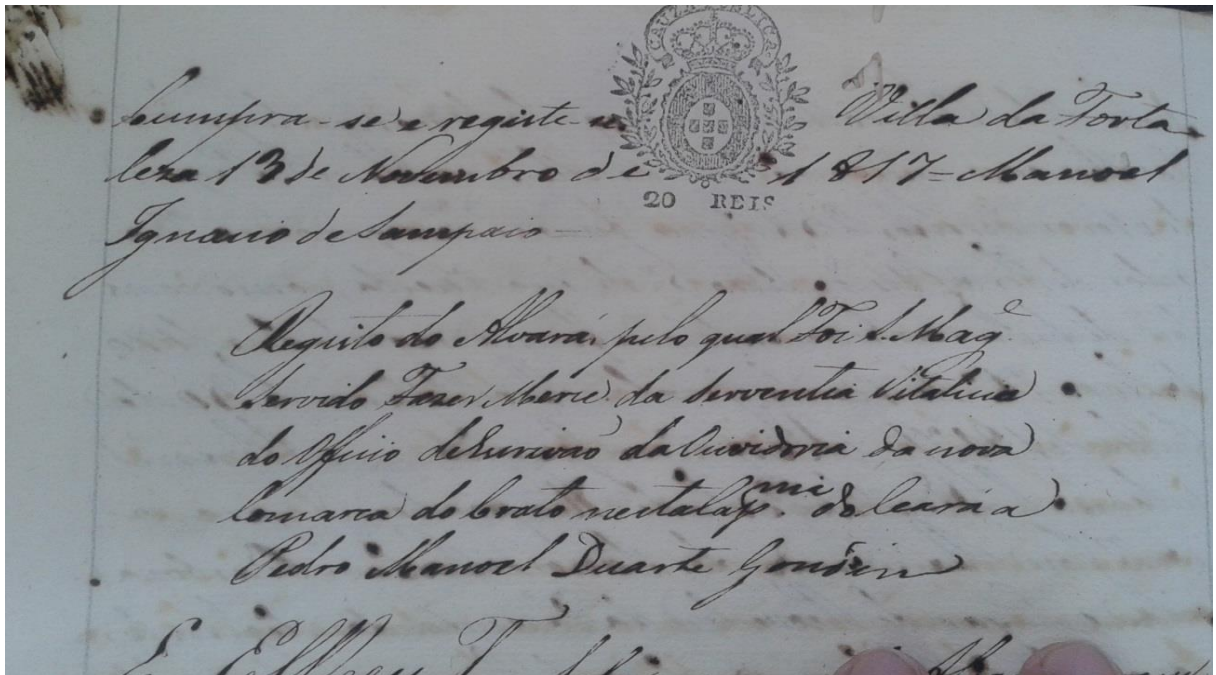 CAUZA PUBLICA
Cumpra-se e registe-se Villa da Forta
leza 13 de Novembro de 1817 = Manoel
Ignacio de Sampaio —
20 REIS
Registo do Alvará, pelo qual Foi S. Mag.e
Servido Fazer Merce da Serventia Vitalicia
do Officio de Escrivaõ da Ouvidoria da nova
Comarca do Crato nesta Cap.mia do Ceará a
Pedro Manoel Duarte Gondim
Eu ElRey